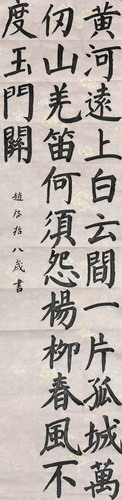 黃河遠上白云間一片孤城萬
仞山羌笛何須怨楊柳春風不
度玉門關
趙啓裕八歲書